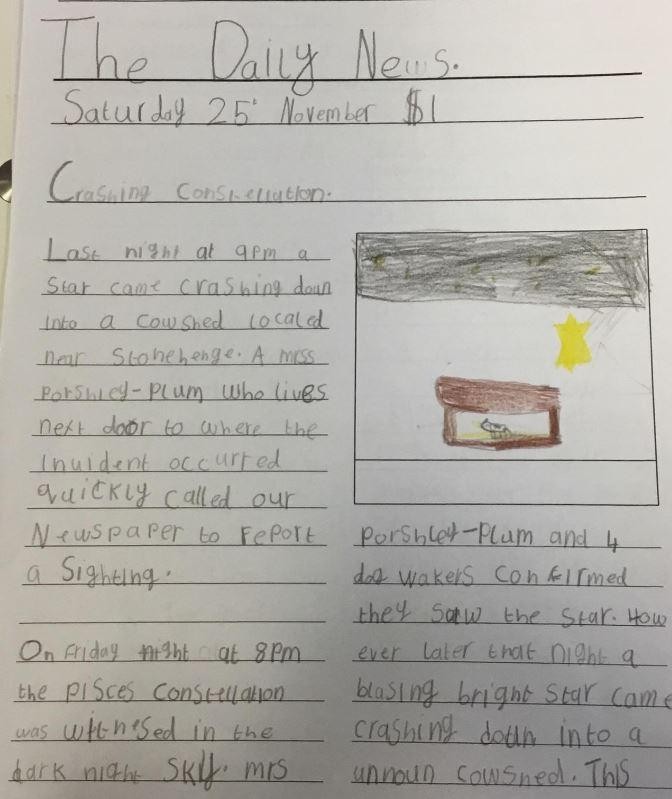 The Daily News.
Saturday 25 November $1
Crashing Constellation.
Last night at 9pm a
Star came crashing down
into a cowshed located
near Stonehenge. A miss
Porshley-Plum who lives
next door to where the
inuident occurred
quickly called our
Newspaper to report
a sighting.
On Friday night at 8pm
the pisces constellation
was withesed in the
dark night sky. mrs
porshley-plum and 4
dog wakers confirmed
they saw the star. How
ever later that night a
blasing bright star came
crashing down into a
unnoun cowshed. This